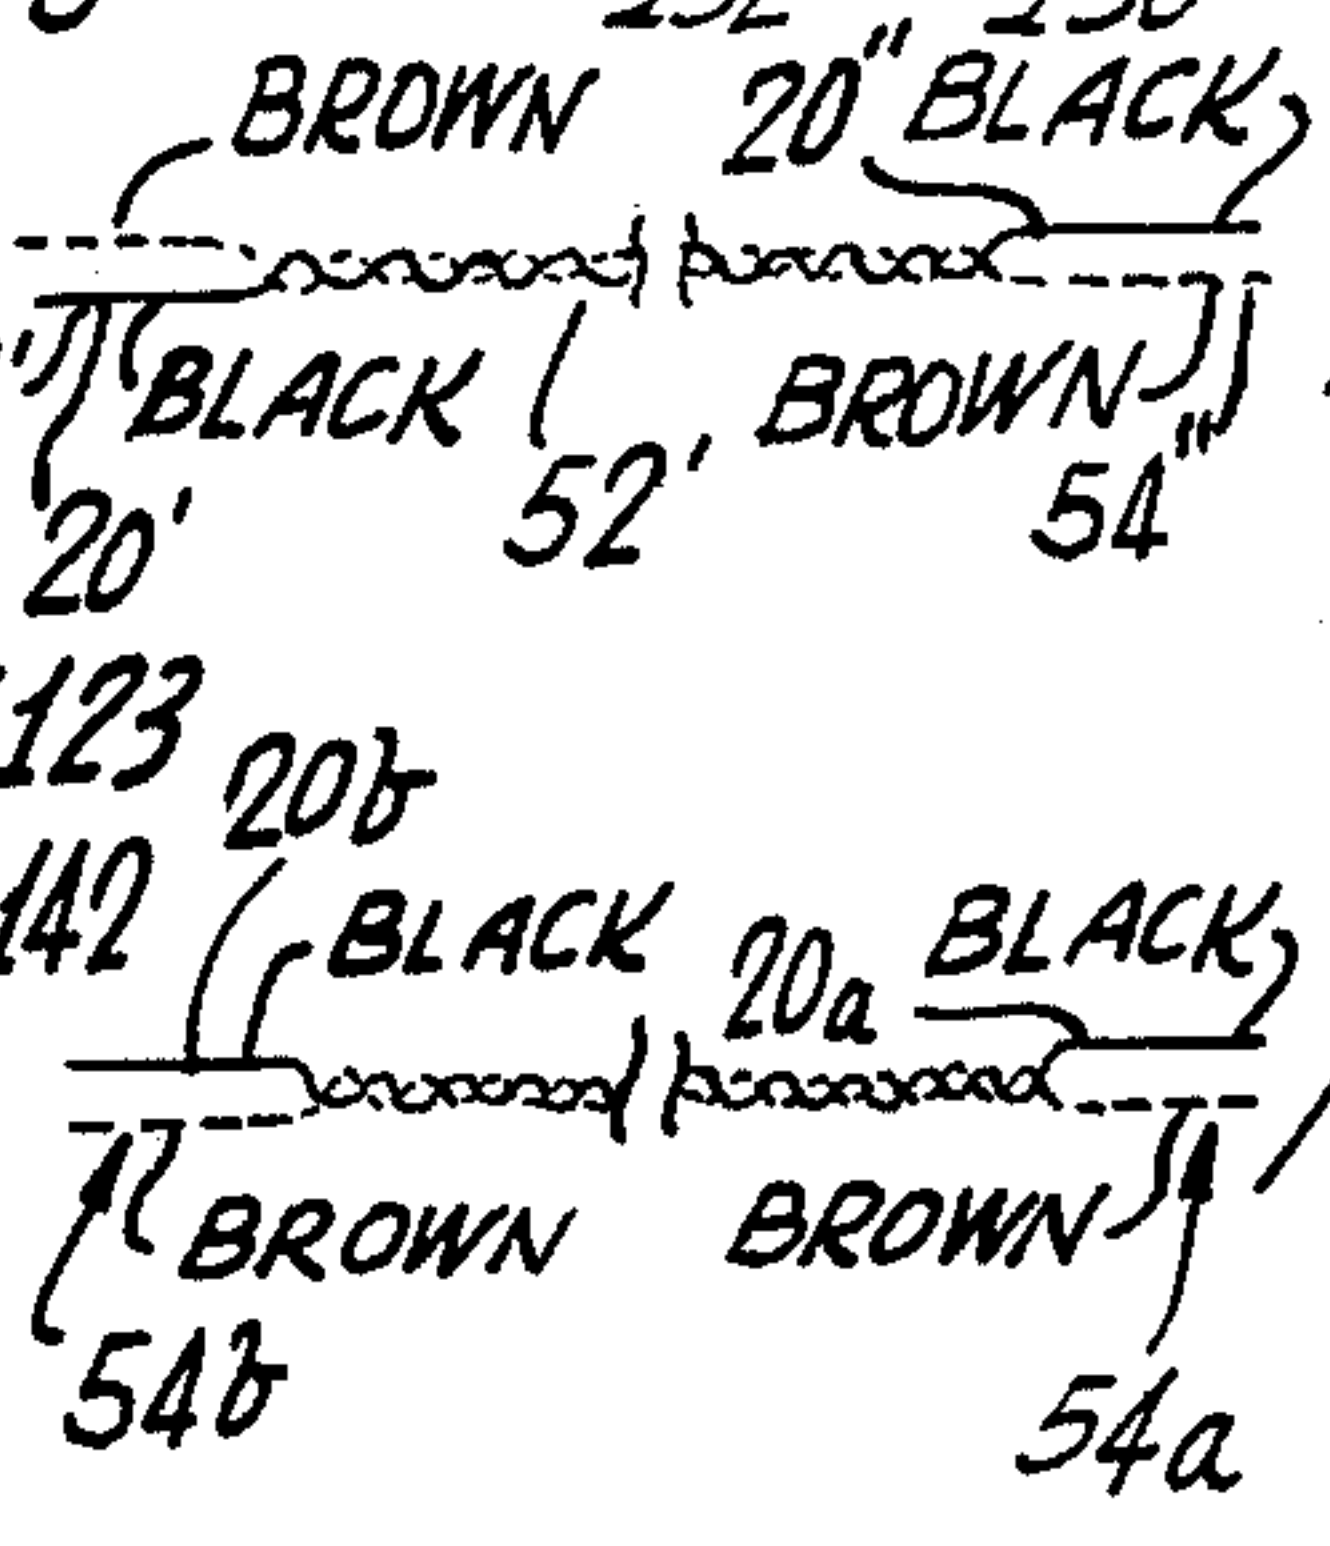 BROWN 20" BLACK
BLACK BROWN
20' 52' 54"
123
20b
142 BLACK 20a BLACK
BROWN BROWN
54b 54a